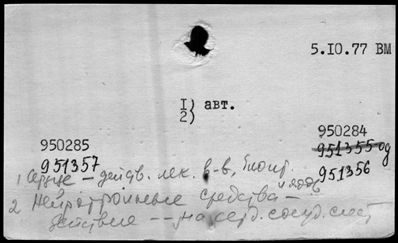 5.10.77 ВМ
1) авт.
2)
950285
950284
951357
951355 од
951356
1 Сердце – действ. лек. в-в,
и ядов
2 Нейротропные средства –
действие -- на серд. сосуд. сист.